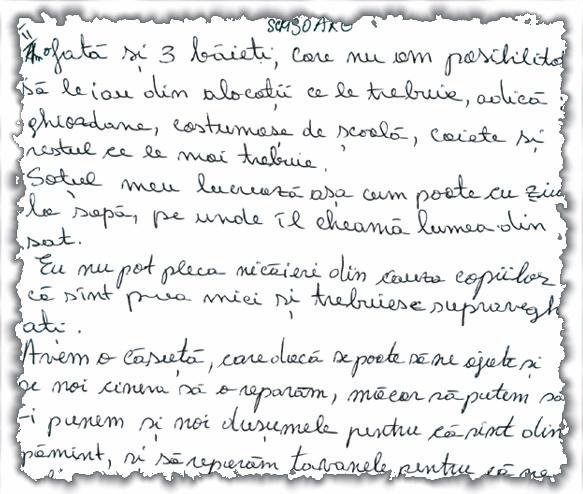 SCRISOARE
o fată si 3 băieti, care nu am posibilito
să le iau din alocatii ce le trebuie, adică
ghiozdane, costumase de scoală, caiete si
restul ce le mai trebuie.
Sotul meu lucrează asa cum poate cu ziu
la sapă, pe unde îl cheamă lumea din
sat.
Eu nu pot pleca nicăieri din cauza copiilor
că sînt prea mici si trebuiesc supravegh
ati.
Avem o căsută, care dacă se poate să ne ajute si
pe noi cineva să o reparăm, măcar să putem să
-i punem si noi dusumele pentru că sînt din
pămînt, si să reparăm tavanele pentru că ne